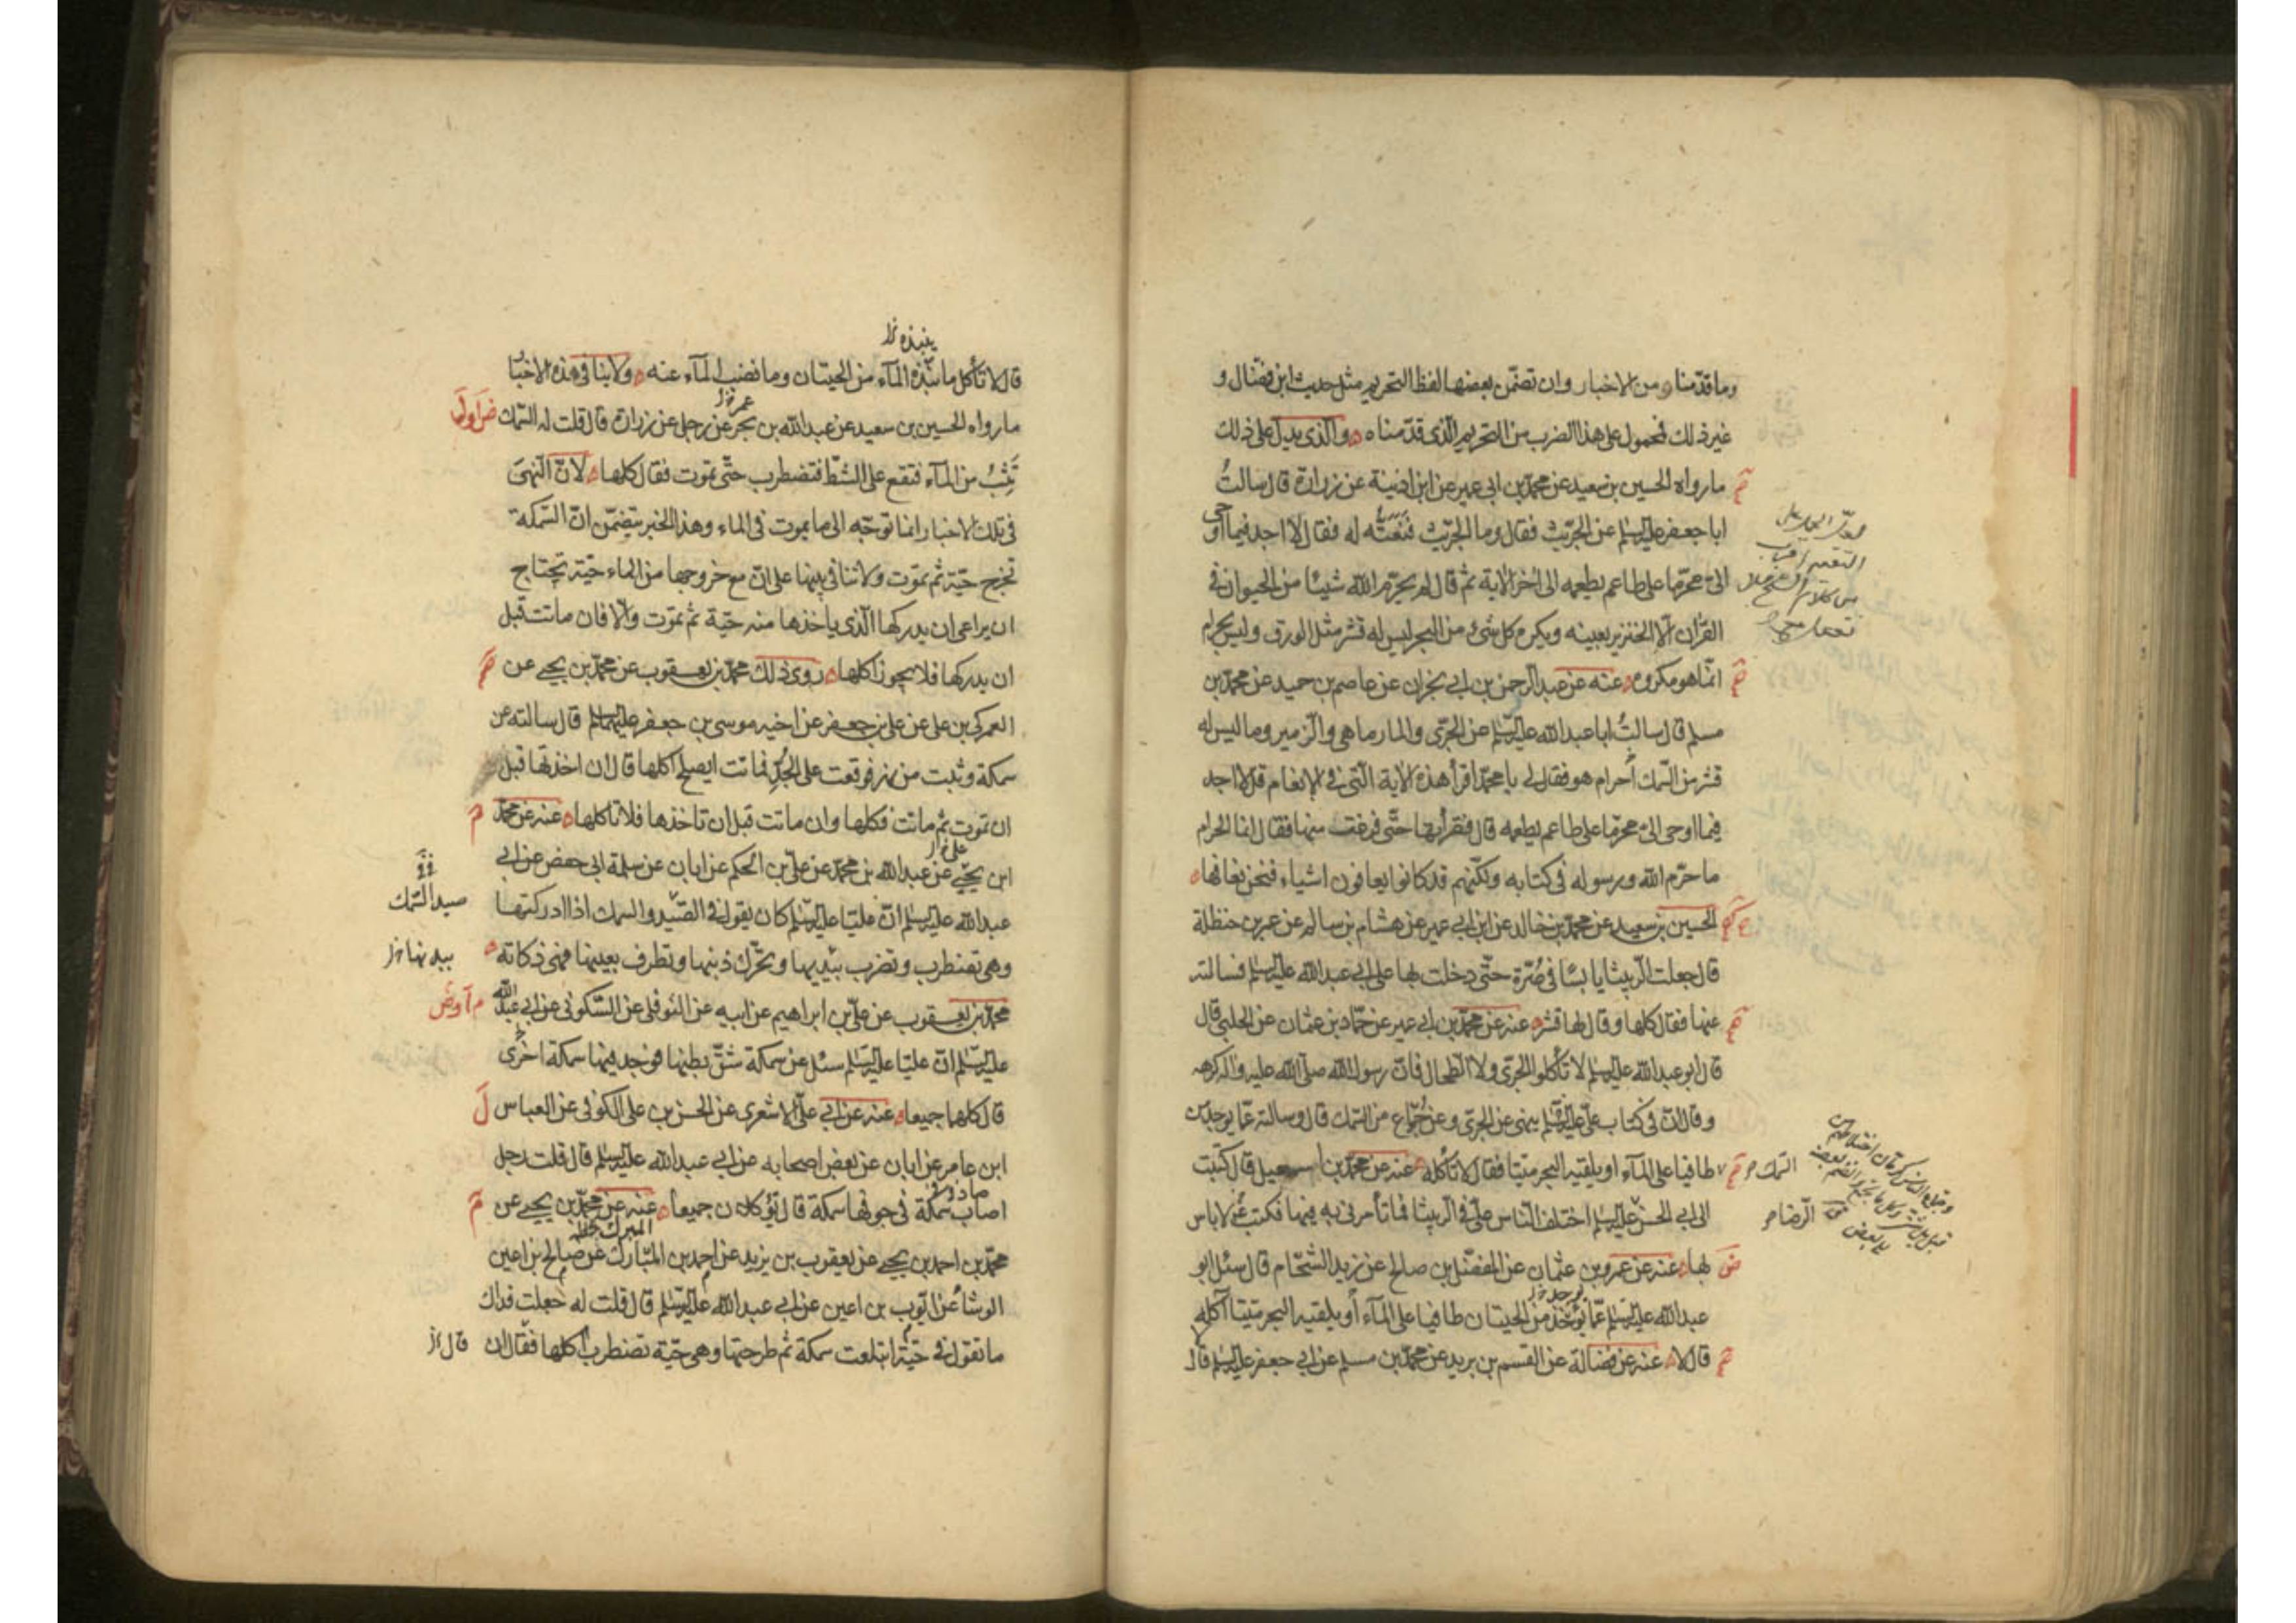 وما قدّمناه من الاخبار وان تضمّن بعضها لفظ التحريم مثل حديث ابن فضّال و
غير ذلك فمحمول على هذا الضرب من التحريم الّذى قدّمناه والّذى يدلّ على ذلك
ما رواه الحسين بن سعيد عن محمّد بن ابى عمير عن ابن اذينة عن زرارة قال سالتُ
ابا جعفر عليه السلم عن الجرّيث فقال وما الجرّيث فنعتّه له فقال لا اجد فيما اوحى
الىّ محرّما على طاعم يطعمه الى اخر الاية ثم قال لم يحرّم الله شيئا من الحيوان فى
القران الّا الخنزير بعينه ويكره كل شىء من البحر ليس له قشر مثل الورق وليس بحرام
انّما هو مكروه عنه عن عبد الرحمن بن ابى نجران عن عاصم بن حميد عن محمّد بن
مسلم قال سالتُ ابا عبد الله عليه السّلم عن الجرّى والمارماهى والزّمير وما ليس له
قشر من السّمك أحرام هو فقال لى يا محمّد اقرأ هذه الاية الّتى فى الانعام قل لا اجد
فيما اوحى الىّ محرّما على طاعم يطعمه قال فقرأتها حتّى فرغت منها فقال انما الحرام
ما حرّم الله ورسوله فى كتابه ولكنّهم قد كانوا يعافون اشياء فنحن نعافها
الحسين بن سعيد عن محمّد بن خالد عن ابن ابى عمير عن هشام بن سالم عن عمر بن حنظلة
قال جعلت الرّبيثا يابسا فى صُرّة حتّى دخلت بها على ابى عبد الله عليه السلم فسالته
عنها فقال كلها وقال لها قشر عنه عن محمّد بن ابى عمير عن حمّاد بن عثمان عن الحلبى قال
قال ابو عبد الله عليه السلم لا تأكلوا الجرّى ولا الطحال فانّ رسول الله صلّى الله عليه واله كرهه
وقال انّ فى كتاب علىّ عليه السّلم ينهى عن الجرّى وعن جُمّاع من السّمك قال وسالته عمّا يوجد من
السّمك طافيا على المآء او يلقيه البحر ميّتا فقال لا تأكله عنه عن محمّد بن اسمعيل قال كتبت
الى ابى الحسن الرّضا عليه السلم اختلف النّاس علىّ فى الرّبيثا فما تأمرنى به فيها فكتب ع لا باس
بها عنه عن عمرو بن عثمان عن المفضّل بن صالح عن زيد الشحّام قال سئل ابو
عبد الله عليه السّلم عمّا يؤخذ من الحيتان طافيا على المآء أو يلقيه البحر ميّتا آكله
قال لا عنه عن فضالة عن القسم بن بريد عن محمّد بن مسلم عن ابى جعفر عليه السلم قال
ينبذه
قال لا تأكل ما نبذه المآء من الحيتان وما نضب المآء عنه ولا ينافى هذه الاخبار
ما رواه الحسين بن سعيد عن عبد الله بن بحر عن رجل عن زرارة قال قلت له السّمك
تَثِبُ من المآء فتقع على الشطّ فتضطرب حتّى تموت فقال كلها لانّ النّهى
فى تلك الاخبار انما توجّه الى ما يموت فى الماء وهذا الخبر يتضمّن انّ السّمكة
تخرج حيّة ثم تموت ولا تنافى بينها على انّ مع خروجها من الماء حيّة يحتاج
ان يراعى ان يدركها الّذى ياخذها منه حيّة ثم تموت والّا فان ماتت قبل
ان يدركها فلا يجوز اكلها روى ذلك محمّد بن يعقوب عن محمّد بن يحيى عن
العمركى بن على عن على بن جعفر عن اخيه موسى بن جعفر عليهما السلم قال سالته عن
سمكة وثبت من نهر فوقعت على الجُدّ فماتت ايصلح اكلها قال ان اخذتها قبل
ان تموت ثم ماتت فكلها وان ماتت قبل ان تاخذها فلا تاكلها عنه عن محمّد
ابن يحيى عن عبد الله بن محمّد عن علىّ بن الحكم عن ابان عن سلمة ابى حفص عن ابى
عبد الله عليه السّلم انّ عليّا عليه السّلم كان يقول فى الصّيد والسمك اذا ادركتها
صيد السّمك
وهى تضطرب وتضرب بيديها وتحرّك ذنبها وتطرف بعينها فهى ذكاته
بيدنها
محمّد بن يعقوب عن علىّ بن ابراهيم عن ابيه عن النوفلى عن السّكونى عن ابى عبد الله
عليه السّلم انّ عليّا عليه السّلم سئل عن سمكة شقّ بطنها فوجد فيها سمكة اخرى
قال كلهما جميعا عنه عن ابى علىّ الاشعرى عن الحسن بن على الكوفى عن العباس
ابن عامر عن ابان عن بعض اصحابه عن ابى عبد الله عليه السلم قال قلت رجل
اصاب سمكة فى جوفها سمكة قال يؤكلان جميعا عنه عن محمّد بن يحيى عن
محمّد بن احمد بن يحيى عن يعقوب بن يزيد عن احمد بن المبارك عن صالح بن اعين
الوشا عن ايّوب بن اعين عن ابى عبد الله عليه السّلم قال قلت له جعلت فداك
ما تقول فى حيّة ابتلعت سمكة ثم طرحتها وهى حيّة تضطرب آكلها فقال ان
قال